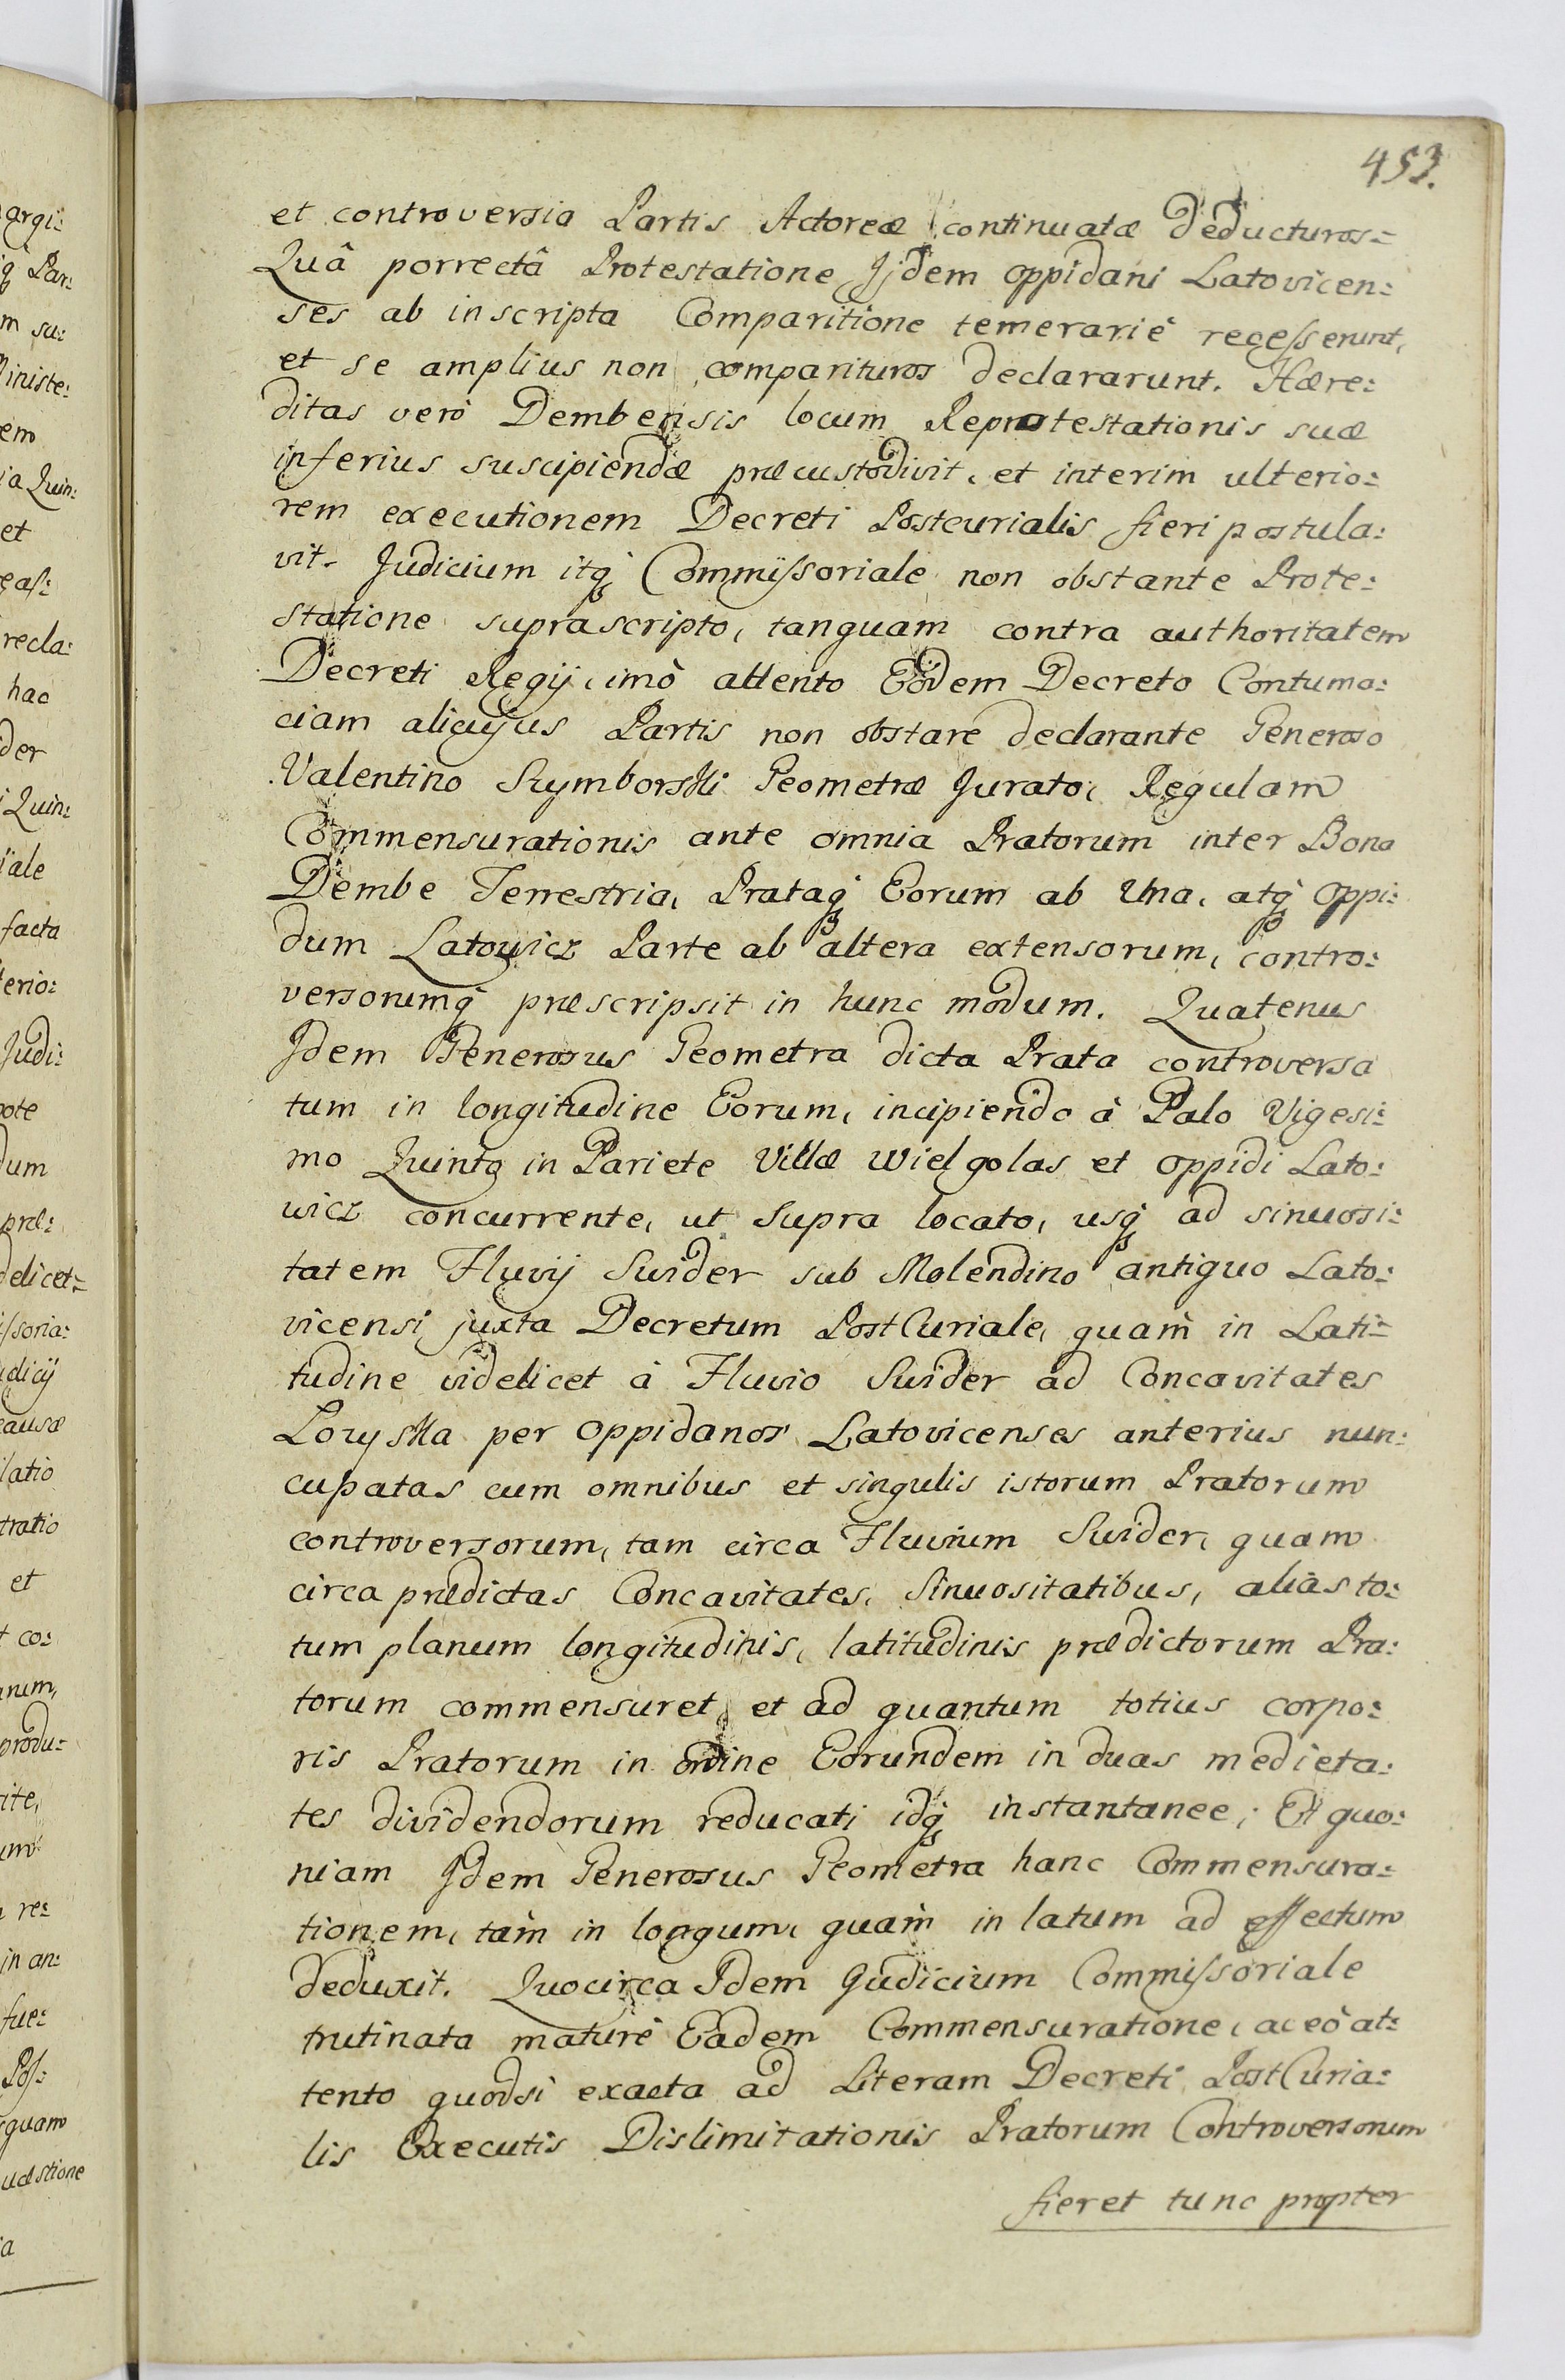 453.
et controversia Partis Actoreæ continuatæ deducturos=
Quâ porrectâ Protestatione Ijdem Oppidani Latovicen:
ses ab inscripta Comparitione temerariè recesserunt,
et se amplius non comparituros declararunt. Hære:
ditas verò Dembensis locum Reprotestationis suæ
inferius suscipiendæ præcustodivit, et interim ulterio:
rem executionem Decreti Postcurialis fieri postula:
vit. Judicium itq̨ Commissoriale non obstante Prote:
statione suprascripto, tanquam contra authoritatem
Decreti Regij, imò attento Eodem Decreto Contuma:
ciam alicujus Partis non obstare declarante Generoso
Valentino Szymborski Geometræ Jurato, Regulam
Commensurationis ante omnia Pratorum inter Bona
Dembe Terrestria, Prataq̨ Eorum ab Una, atq̨ Oppi:
dum Latowicz Parte ab altera extensorum, contro:
versorumq̨ præscripsit in hunc modum. Quatenus
Idem Generosus Geometra dicta Prata controversa
tum in longitudine Eorum, incipiendo à Palo Vigesi:
mo Quinto in Pariete Villæ Wielgolas et Oppidi Lato:
wicz concurrente, ut supra locato, usq̨ ad sinuosi:
tatem Fluvij Swider sub Molendino antiquo Lato:
vicensi juxta Decretum PostCuriale, quam in Lati=
tudine videlicet à Fluvio Swider ad Concavitates
Lozyska per Oppidanos Latovicenses anterius nun:
cupatas cum omnibus et singulis istorum Pratorum
controversorum, tam circa Fluvium Swider, quam
circa prædictas Concavitates, Sinuositatibus, aliàs to:
tum planum longitudinis, latitudinis prædictorum Pra:
torum commensuret, et ad quantum totius corpo:
ris Pratorum in ordine Eorundem in duas medieta:
tes dividendorum reducat, idq̨ instantanee; Et quo:
niam Idem Generosus Geometra hanc Commensura:
tionem, tàm in longum, quam in latum ad effectum
deduxit. Quocirca Idem Judicium Commissoriale
trutinata maturè Eadem Commensuratione, ac eò at:
tento quodsi exacta ad Literam Decreti PostCuria:
lis Executis Dislimitationis Pratorum Controversorum
fieret tunc propter